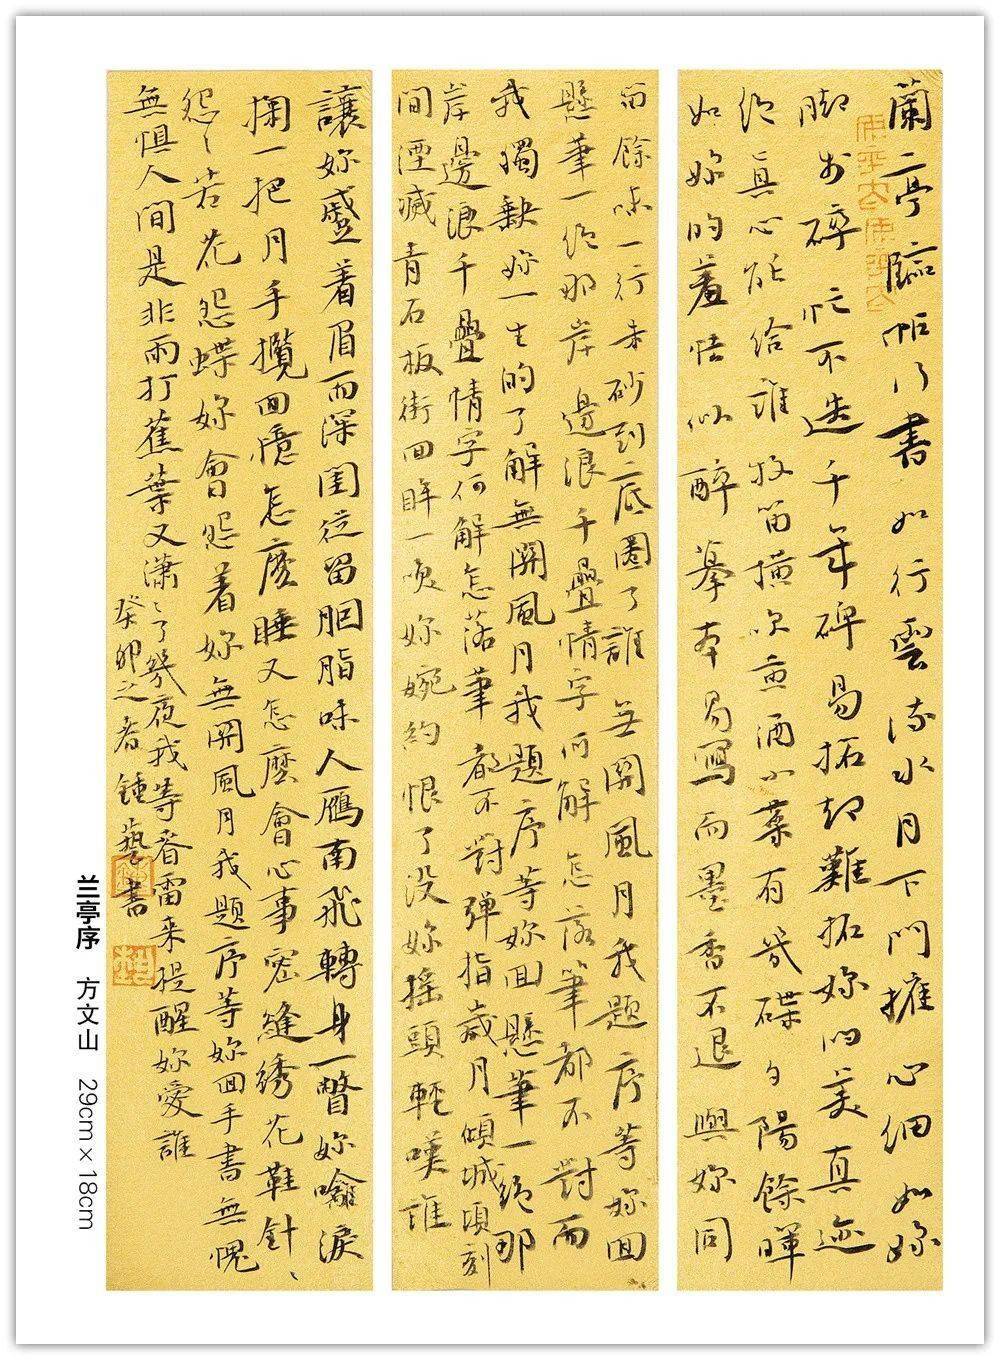 蘭亭臨帖行書如行雲流水月下門推心細如妳
脚步碎忙不迭千年碑易拓却難拓妳的美真迹
絕真心能給誰牧笛橫吹黃酒小菜有幾碟夕陽餘暉
如妳的羞怯似醉摹本易寫而墨香不退與妳同
留餘味一行朱砂到底圈了誰無關風月我題序等妳回
懸筆一絕那岸邊浪千疊情字何解怎落筆都不對而
我獨缺妳一生的了解無關風月我題序等妳回懸筆一絕那
岸邊浪千疊情字何解怎落筆都不對彈指歲月傾城頃刻
間湮滅青石板街回眸一笑妳婉約恨了没妳搖頭輕嘆誰
讓妳蹙着眉而深閨徒留胭脂味人雁南飛轉身一瞥妳噙淚
掬一把月手攬回憶怎麼睡又怎麼會心事密縫綉花鞋針、
怨、若花怨蝶妳會怨着妳無關風月我題序等妳回手書無愧
無懼人間是非雨打蕉葉又潇、了幾夜我等春雷来提醒妳愛誰
癸卯之春鍾藝書
兰亭序 方文山 29cm×18cm